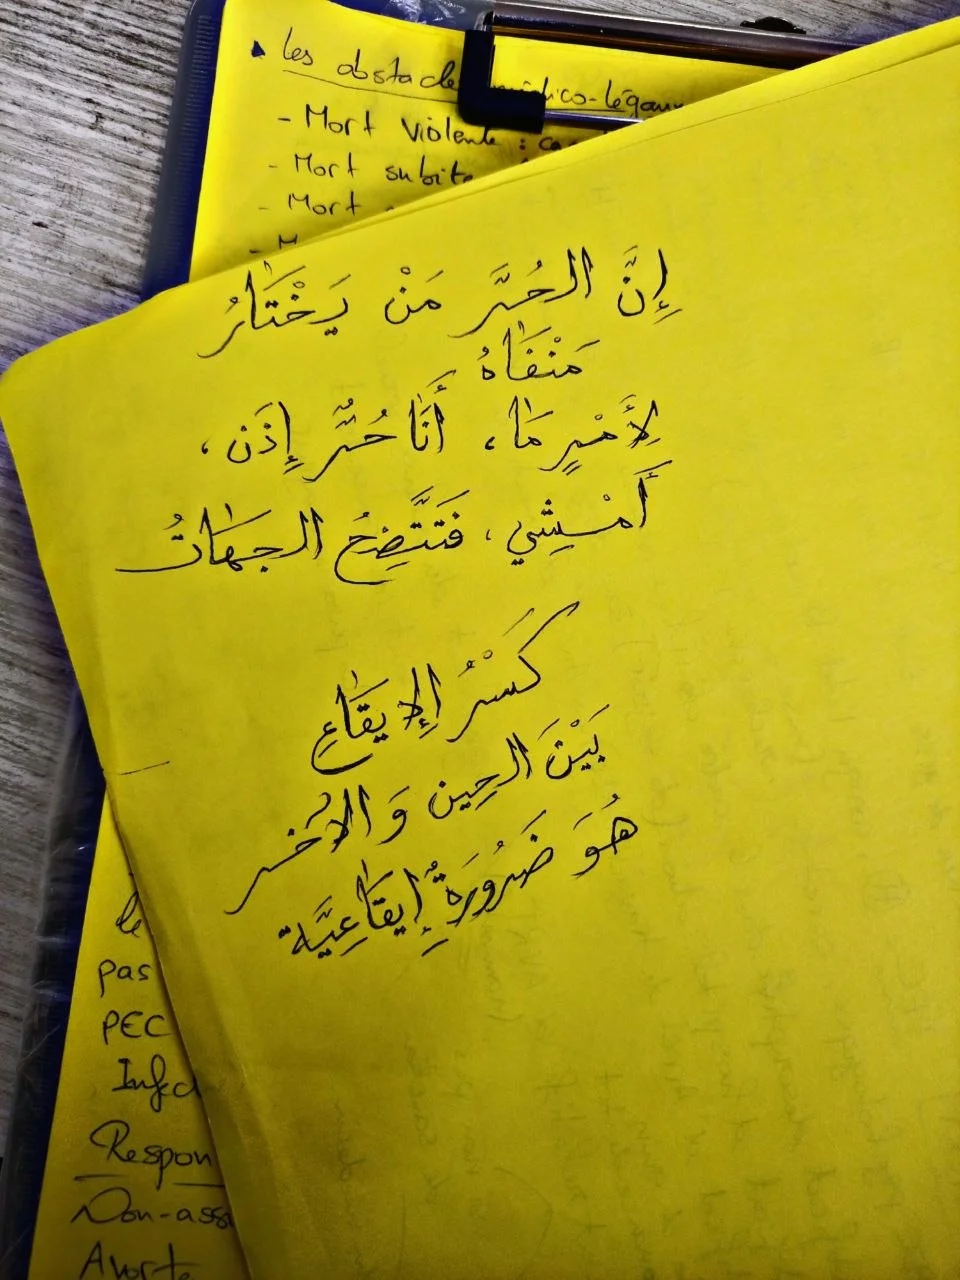 les obstacles médico-légaux
- Mort violente :
- Mort subite
- Mort
إِنَّ الحُرَّ مَنْ يَخْتَارُ
مَنْفَاهُ
لِأَمْرٍ مَا، أَنَا حُرٌّ إِذَن،
أَمْشِي، فَتَتَّضِحُ الجِهَاتُ
كَسْرُ الإِيقَاعِ
بَيْنَ الحِين وَ الأُخر
هُوَ ضَرُورَةٌ إِيقَاعِيَّة
le
pas
PEC
Infec
Respon
Non-assi
Avorte